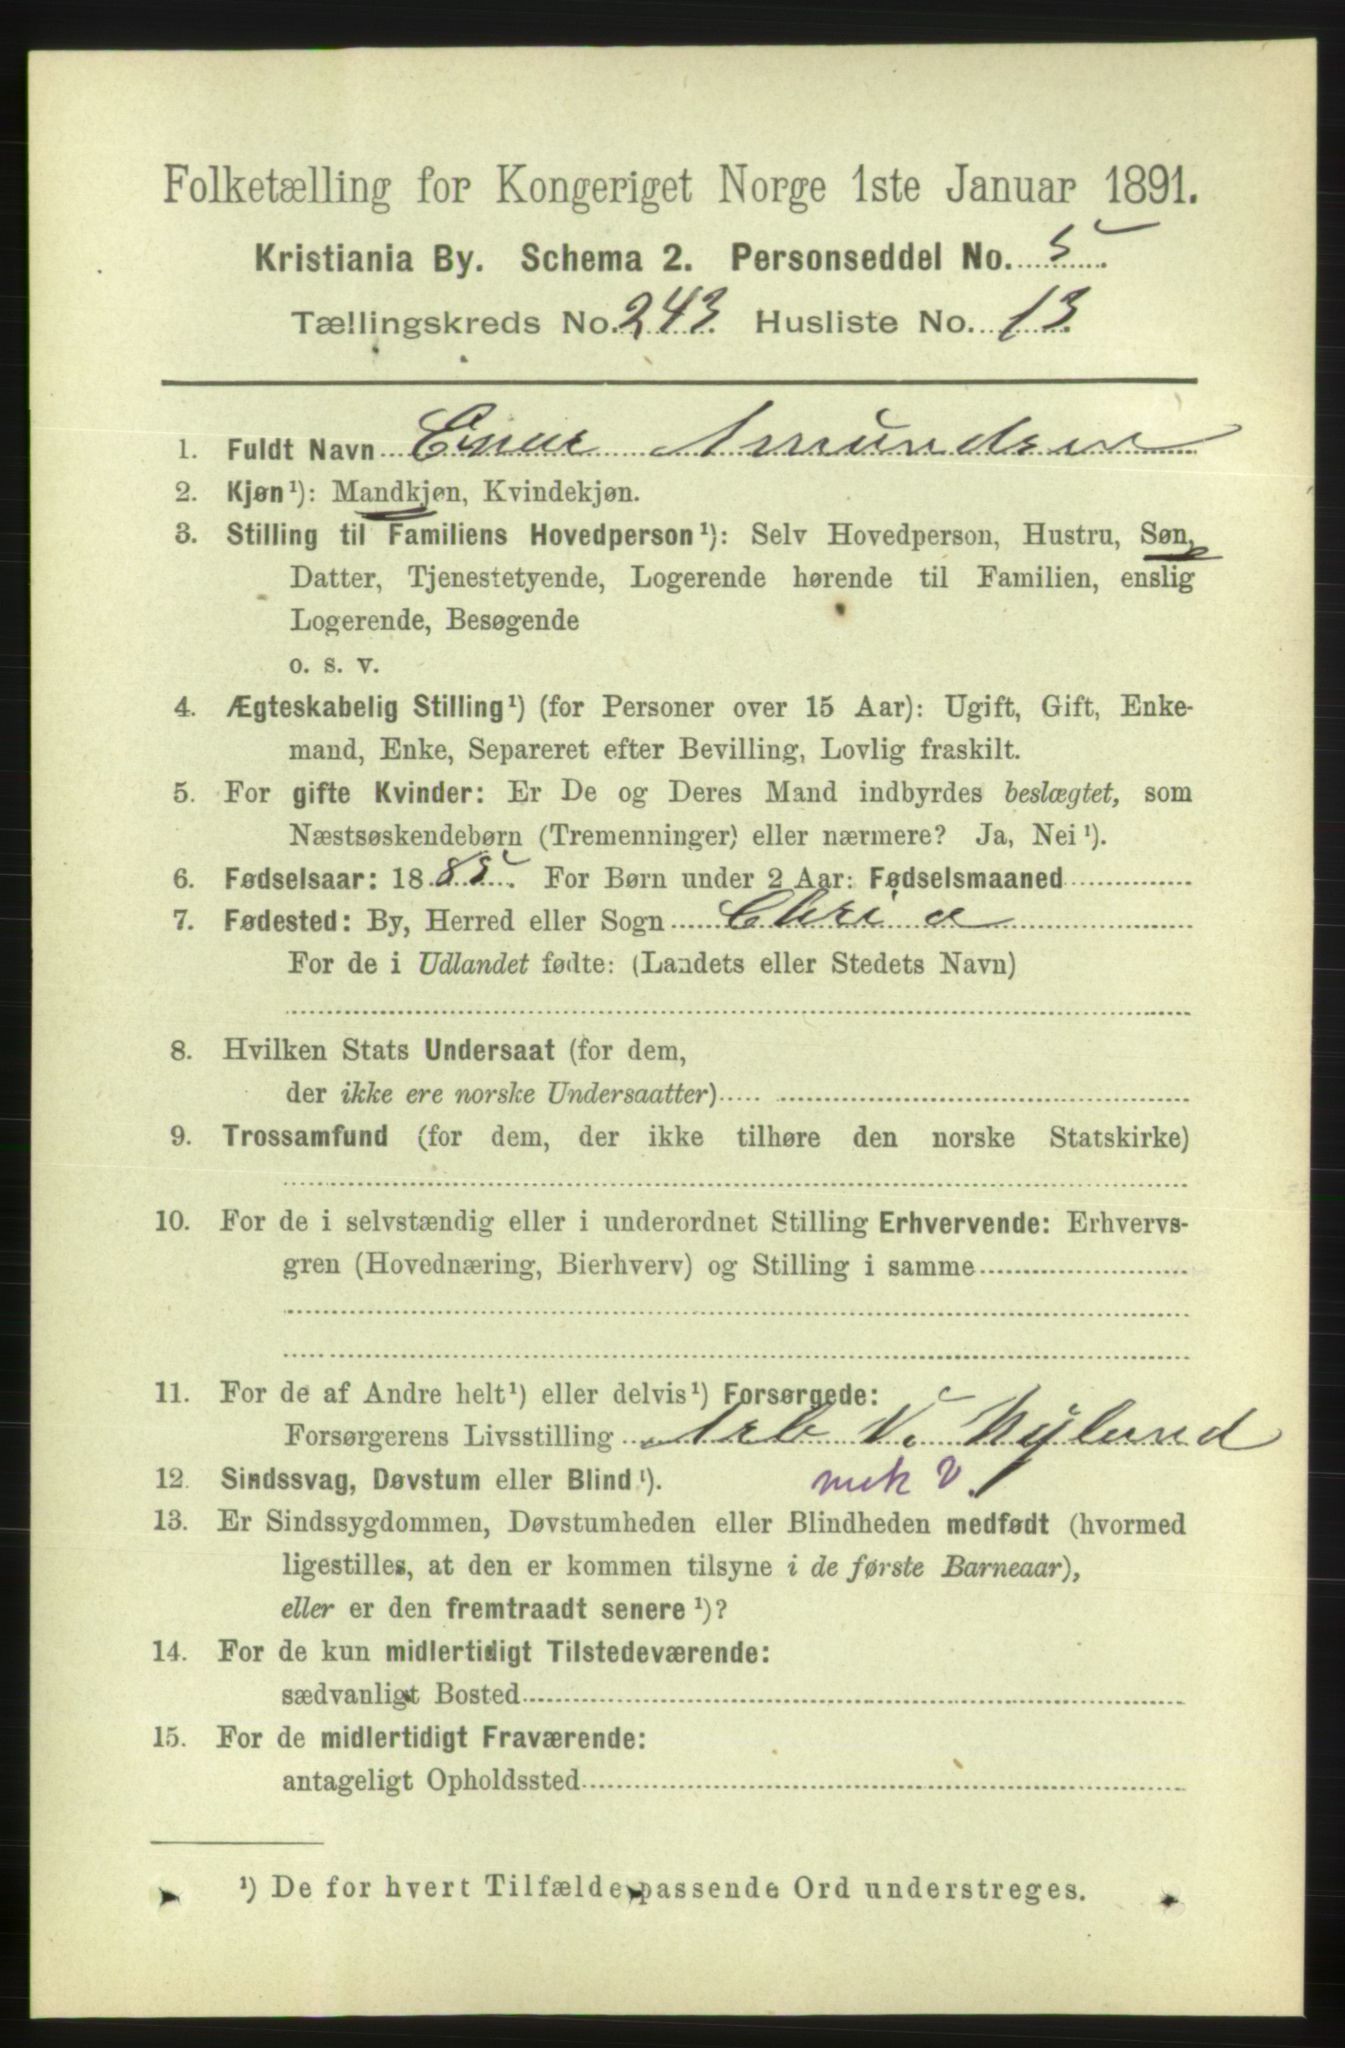 Folketælling for Kongeriget Norge 1ste Januar 1891.
Kristiania By. Schema 2. Personseddel No. 5
Tællingskreds No. 243 Husliste No. 13
1. Fuldt Navn Einar Amundsen
2. Kjøn¹): Mandkjøn, Kvindekjøn.
3. Stilling til Familiens Hovedperson¹): Selv Hovedperson, Hustru, Søn,
Datter, Tjenestetyende, Logerende hørende til Familien, enslig
Logerende, Besøgende
o. s. v.
4. Ægteskabelig Stilling¹) (for Personer over 15 Aar): Ugift, Gift, Enke-
mand, Enke, Separeret efter Bevilling, Lovlig fraskilt.
5. For gifte Kvinder: Er De og Deres Mand indbyrdes beslægtet, som
Næstsøskendebørn (Tremenninger) eller nærmere? Ja, Nei¹).
6. Fødselsaar: 1885. For Børn under 2 Aar: Fødselsmaaned
7. Fødested: By, Herred eller Sogn Chria
For de i Udlandet fødte: (Landets eller Stedets Navn)
8. Hvilken Stats Undersaat (for dem,
der ikke ere norske Undersaatter)
9. Trossamfund (for dem, der ikke tilhøre den norske Statskirke)
10. For de i selvstændig eller i underordnet Stilling Erhvervende: Erhvervs-
gren (Hovednæring, Bierhverv) og Stilling i samme
11. For de af Andre helt¹) eller delvis¹) Forsørgede:
Forsørgerens Livsstilling Arb V. Nylund
12. Sindssvag, Døvstum eller Blind¹). mek V.
13. Er Sindssygdommen, Døvstumheden eller Blindheden medfødt (hvormed
ligestilles, at den er kommen tilsyne i de første Barneaar),
eller er den fremtraadt senere¹)?
14. For de kun midlertidigt Tilstedeværende:
sædvanligt Bosted
15. For de midlertidigt Fraværende:
antageligt Opholdssted
¹) De for hvert Tilfælde passende Ord understreges.